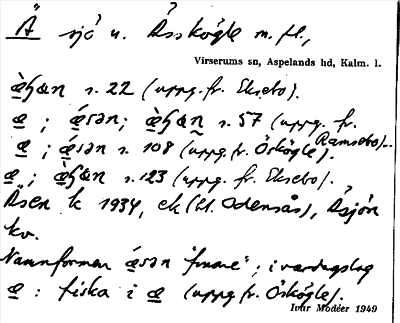 Ä sjö u. Åsskögle m. fl.,
Virserums sn, Aspelands hd, Kalm. l.
s. 22 (uppg. fr. Eksebo).
æ ; ǽsən ; s. 57 (uppg. fr.
Ramsebo).
æ ; ǽsən s. 108 (uppg. fr. Öskögle).
æ ; s. 123 (uppg. fr. Eksebo).
Åsen k 1934, ek (kl. Odensås), Åsjön
kv.
Namnformen ǽsən "finare" ; i vardagslag
æ : fiska i æ (uppg. fr. Öskögle).
Ivar Modéer 1949